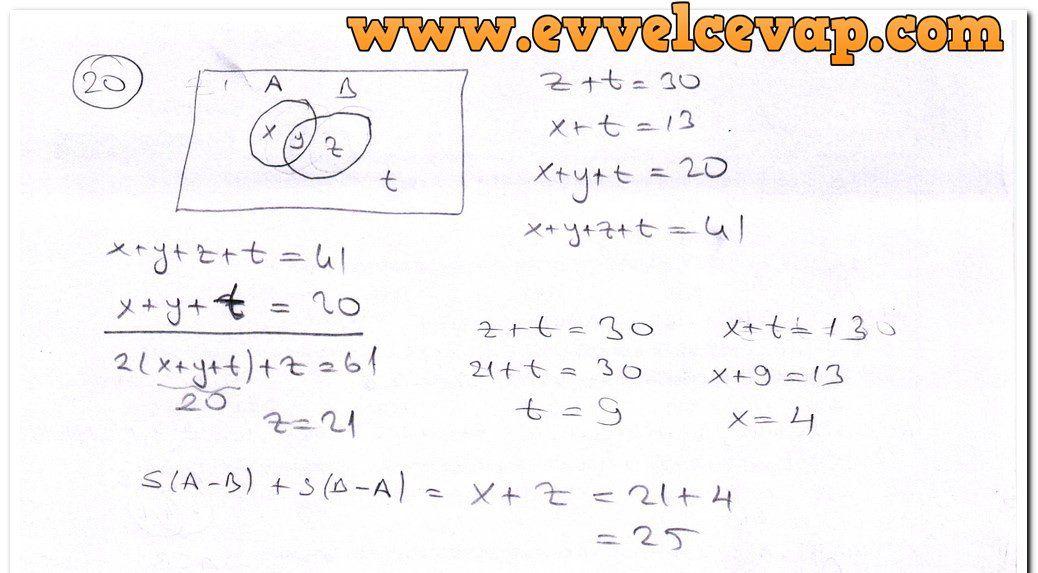 www.evvelcevap.com
20
A B
x y z
t
z+t=30
x+t=13
x+y+t=20
x+y+z+t=41
x+y+z+t=41
x+y+t = 20
2(x+y+t)+z=61
20
z=21
z+t=30
21+t=30
t=9
x+t=130
x+9=13
x=4
S(A-B)+S(B-A)= x+z = 21+4
= 25